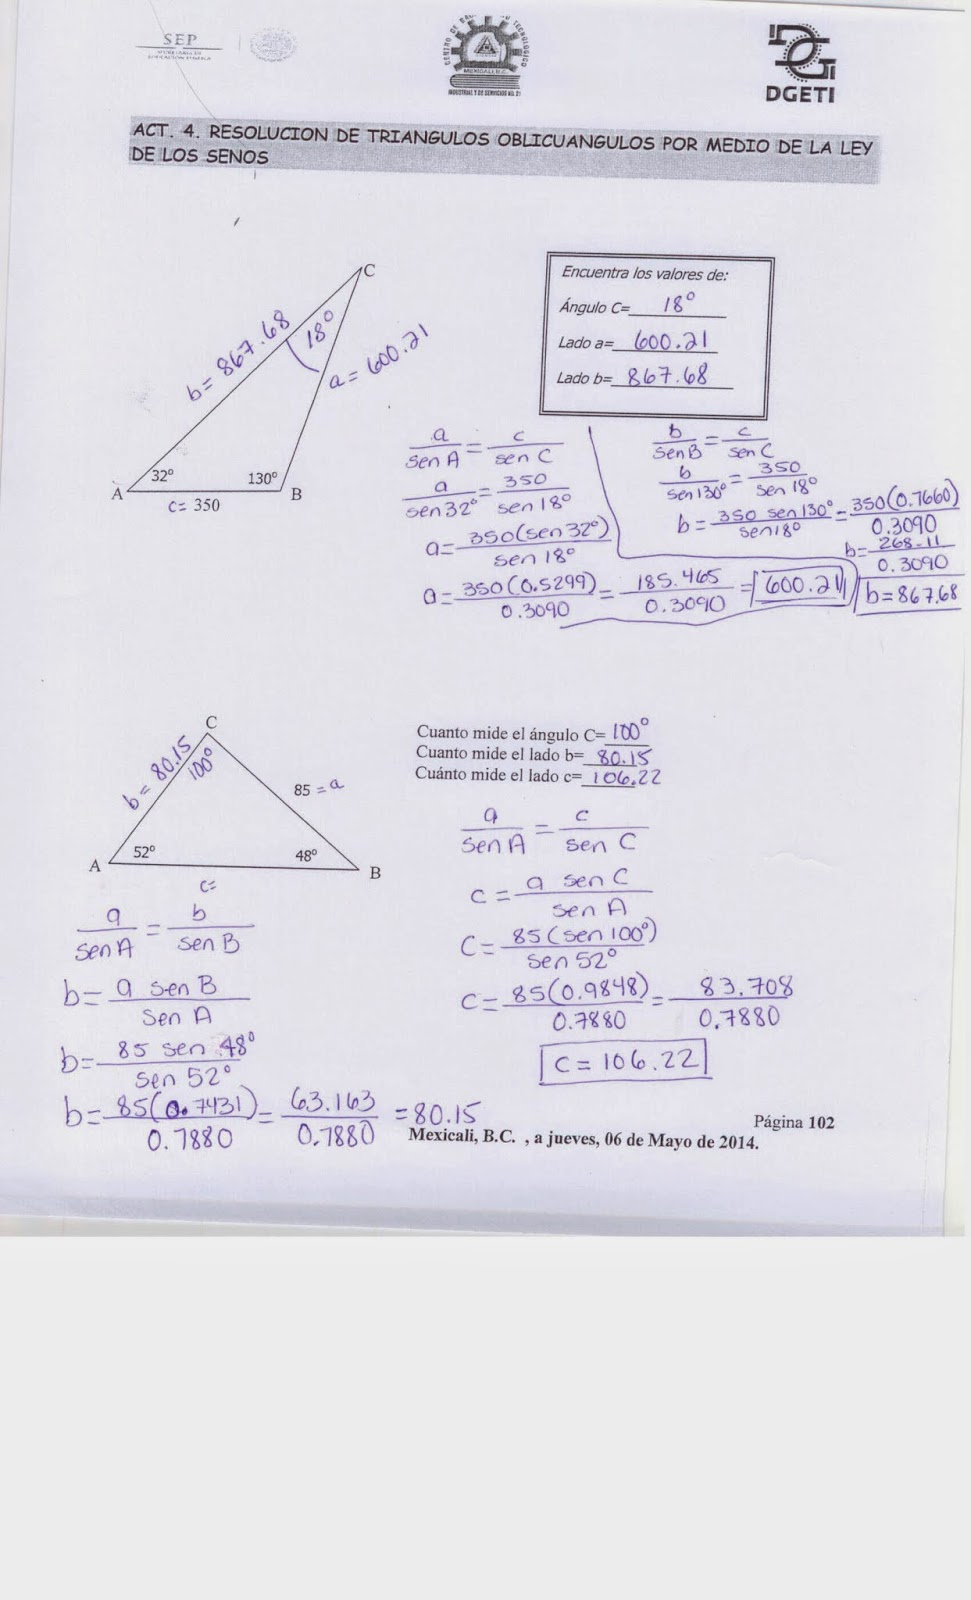 SEP
SECRETARÍA DE
EDUCACIÓN PÚBLICA
MEXICALI B.C.
INDUSTRIAL Y DE SERVICIOS No. 21
DGETI
ACT. 4. RESOLUCION DE TRIANGULOS OBLICUANGULOS POR MEDIO DE LA LEY
DE LOS SENOS
C
18°
b= 867.68
a= 600.21
32°
130°
A
B
c= 350
Encuentra los valores de:
Ángulo C= 18°
Lado a= 600.21
Lado b= 867.68
a/sen A = c/sen C
a/sen 32° = 350/sen 18°
a= 350(sen 32°)/sen 18°
a= 350(0.5299)/0.3090 = 185.465/0.3090 = 600.21
b/senB = c/sen C
b/sen130° = 350/sen 18°
b= 350 sen130°/sen18° = 350(0.7660)/0.3090
b= 268.11/0.3090
b=867.68
C
b= 80.15
100°
85 = a
52°
48°
A
B
c=
Cuanto mide el ángulo C= 100°
Cuanto mide el lado b= 80.15
Cuánto mide el lado c= 106.22
a/sen A = c/sen C
c = a sen C/sen A
C= 85(sen 100°)/sen 52°
C= 85(0.9848)/0.7880 = 83.708/0.7880
C = 106.22
a/sen A = b/sen B
b= a sen B/sen A
b= 85 sen 48°/sen 52°
b= 85(0.7431)/0.7880 = 63.163/0.7880 = 80.15
Página 102
Mexicali, B.C. , a jueves, 06 de Mayo de 2014.